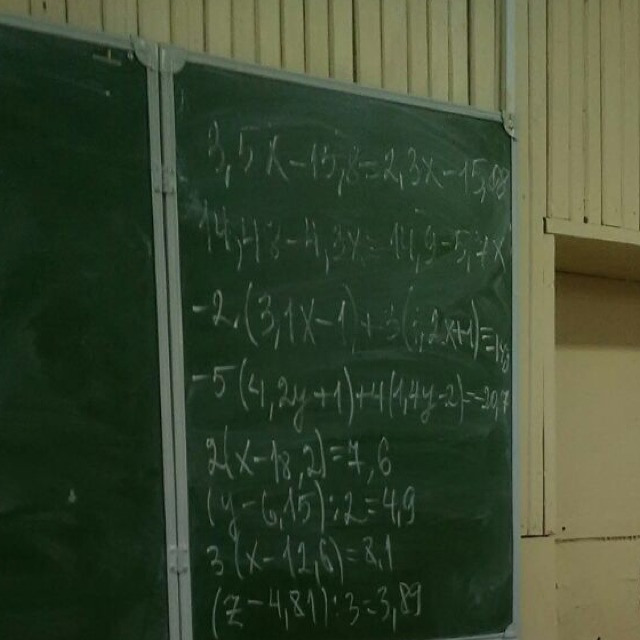 3,5x-15,8=2,3x-15,68
-4,3x=14,9-5,7x
-2.(3,1x-1)+3(2x+1)=
-5(4,2y+1)+4(1,4y-2)=
2(x-18,2)=7,6
(y-6,15):2=4,9
3(x-12,6)=8,1
(z-4,81):3=3,89